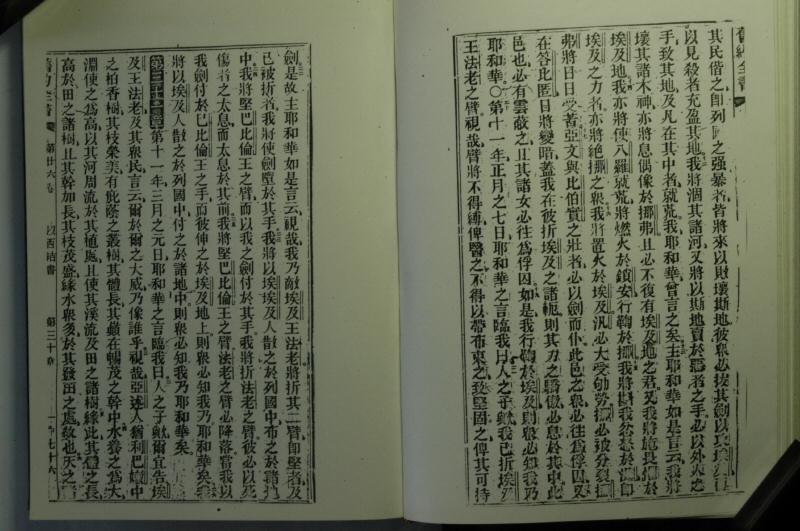 舊約全書
其民偕之卽列之强暴者皆將來以敗壞斯地彼衆必拔其劍以攻埃
以見殺者充盈其地我將涸其諸河又將以斯地賣於惡者之手必以外人之
手致其地及凡在其中者就荒我耶和華曾言之矣主耶和華如是言云我將
壞其諸木神亦將息偶像於挪弗且必不復有埃及地之君又我將施長懼於
埃及地我亦將使八羅就荒將燃火於鎖安行鞫於挪我將斟我忿怒於
埃及之力者亦將絕挪之衆我將置火於埃及汛必大受劬勞挪必被分裂
弗將日日受苦亞文與比伯實之壯者必以劍而仆此邑之衆必往爲俘囚又
在答比匿日將變暗蓋我在彼折埃及之諸軛則其力之驕傲必息於其中此
邑也必有雲蔽之且其諸女必往爲俘囚如是我行鞫於埃及則衆必知我乃
耶和華○第十一年正月之七日耶和華之言臨我曰人之子歟我已折埃
王法老之臂視哉臂將不得縛俾醫之不得以帶布束之致堅固之俾其可持
劍是故主耶和華如是言云視哉我乃敵埃及王法老將折其二臂卽堅者及
已被折者我將使劍墮於其手我將以埃及人散之於列國中布之於諸地
中我將堅巴比倫王之臂而以我之劍付於其手我將折法老之臂彼必以死
傷者之太息而太息於其前我將堅巴比倫王之臂法老之臂必降落當我以
我劍付於巴比倫王之手而彼伸之於埃及地上則衆必知我乃耶和華矣我
將以埃及人散之於列國中付之於諸地中則衆必知我乃耶和華矣
第三十一章第十一年三月之元日耶和華之言臨我曰人之子歟爾宜告埃
及王法老及其衆民言云爾於爾之大威乃像誰乎視哉亞述人猶利巴嫩中
之柏香樹其枝榮美有庇蔭之叢樹其體長其巓在暢茂之幹中水養之爲大
淵使之爲高以其河周流於其植處且使其溪流及田之諸樹緣此其體之長
高於田之諸樹且其幹加長其枝茂盛緣水衆多於其發出之處故也天之
舊約全書 第廿六卷 以西結書 第三十章 一千七十六